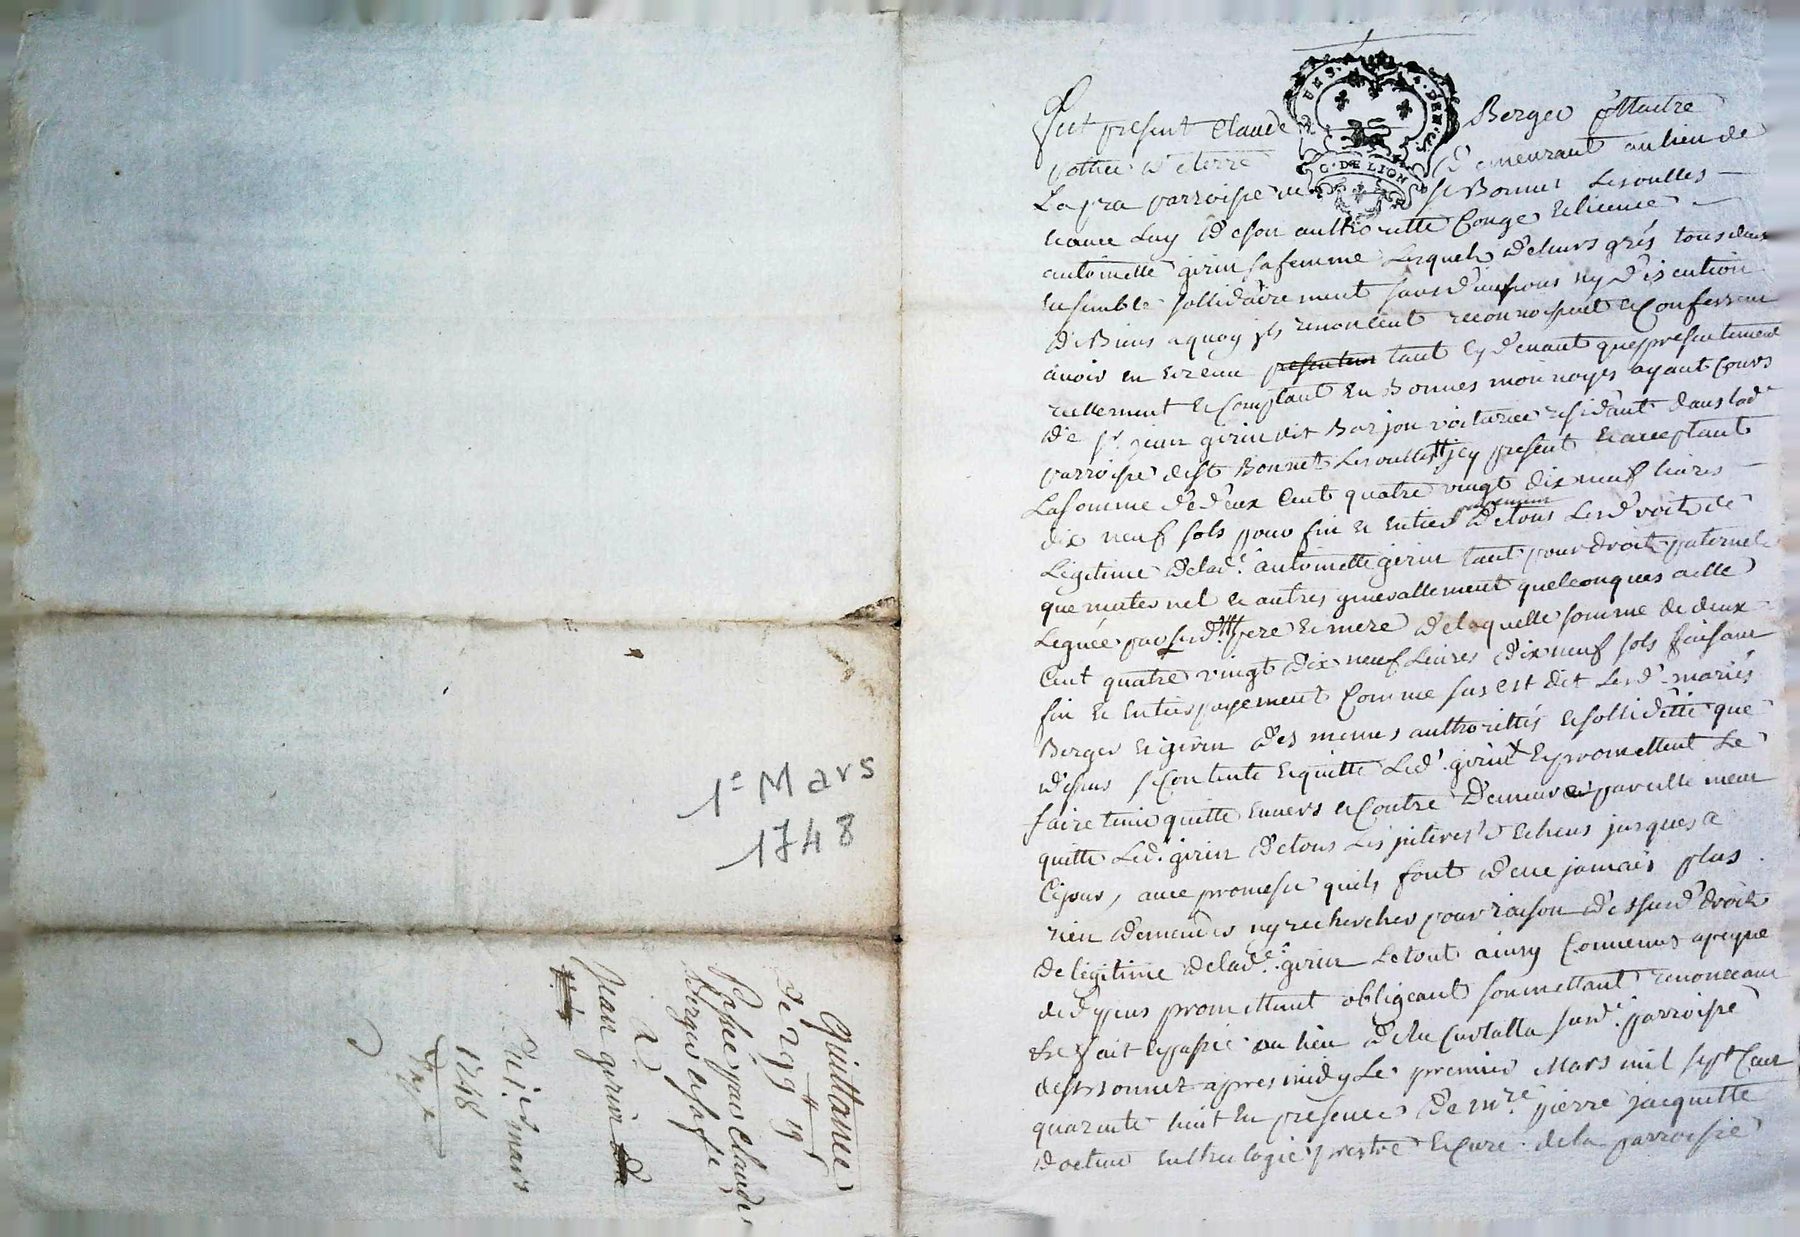 1e Mars
1748
Quittance
de 299 ₶ 19 s
passée par Claude
Berger et sa fe
A
Jean girin
du 1er mars
1748
G. DE LION
fut present Claude Berger Maitre
pottier de terre demeurant au lieu de
La pra parroisse de st Bonnet Lesoulles
Et avec Luy de son authoritté Congé Et licence
antoinette girin sa femme Lesquels de leurs grés tous deux
Ensemble sollidairement sans division ny discution
de Biens a quoy ils renoncent reconnoissent et Confessent
avoir eu et receu tant cy devant que presentement
reellement et Comptant En Bonnes monnoyes ayant Cours
de sr jean girin dit Barjon voiturier residant dans lade
parroisse de st Bonnet Lesoulles jcy present et acceptant
La somme de deux Cent quatre vingt dix neuf livres
dix neuf sols pour fin et entier payement de tous Les droits de
Legitime de lade antoinette girin tant pour droits paternels
que maternel et autres generallement quelconques a elle
Leguée par sesd. pere et mere de laquelle somme de deux
Cent quatre vingt dix neuf Livres dix neuf sols faisant
fin et entier payement Comme sus est dit Lesd. mariés
Berger et girin des memes authorittés et solliditté que
dessus se Contente et quitte Led. girin et promettent Le
faire tenir quitte envers et Contre pareillement
quitte Led. girin de tous Les interest et Echeus jusques a
Cejour, avec promesse quils font de ne jamais plus
rien demender ny rechercher pour raison desd. droits
de legitime de lade girin Le tout ainsy Convenus a peyne
de depens promettant obligeant soumettant renonceant
et fait et passé au lieu de la susd. parroisse
de st Bonnet apres midy Le premier Mars mil sept Cent
quarante huit En presence de mre pierre jacquette
docteur en theologie prestre et Curé de la parroisse